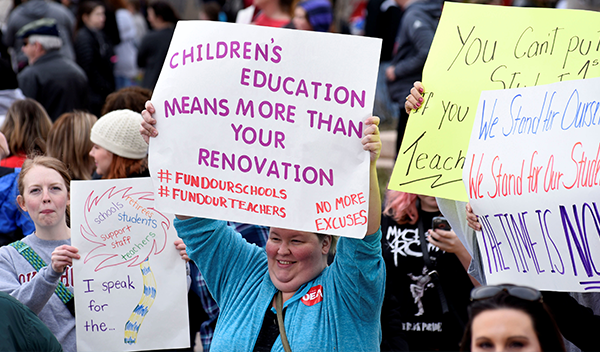 CHILDREN'S
EDUCATION
MEANS MORE THAN
YOUR
RENOVATION
#FUNDOURSCHOOLS
#FUNDOURTEACHERS
NO MORE
EXCUSES
schools
retirees
students
support
staff
teachers
I speak
for the...
You Can't pu
Student 1st
if you
Teach
We Stand for Our
We Stand for Our Stude
THE TIME IS NOW
OEA